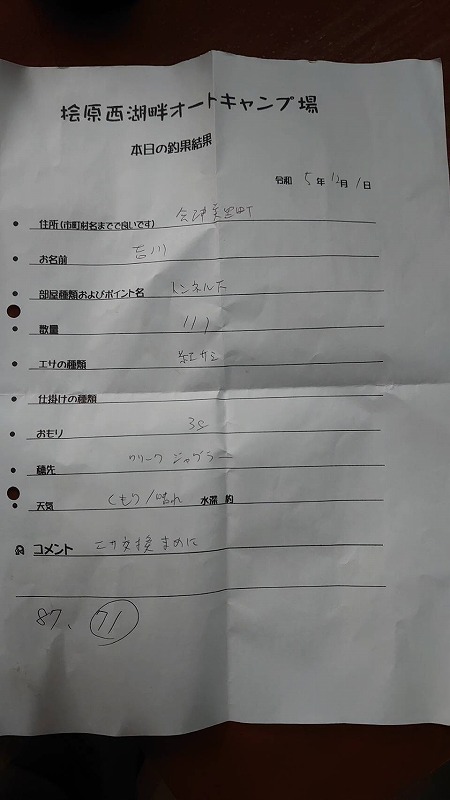 桧原西湖畔オートキャンプ場
本日の釣果結果
令和 5 年 12 月 1 日
住所(市町村名までで良いです) 会津美里町
お名前 吉川
部屋種類およびポイント名 トンネル下
数量 111
エサの種類 紅サシ
仕掛けの種類
おもり
穂先 クリーク ジャグラー
天気 くもり/晴れ 水深 約
コメント エサ交換まめに
87、71